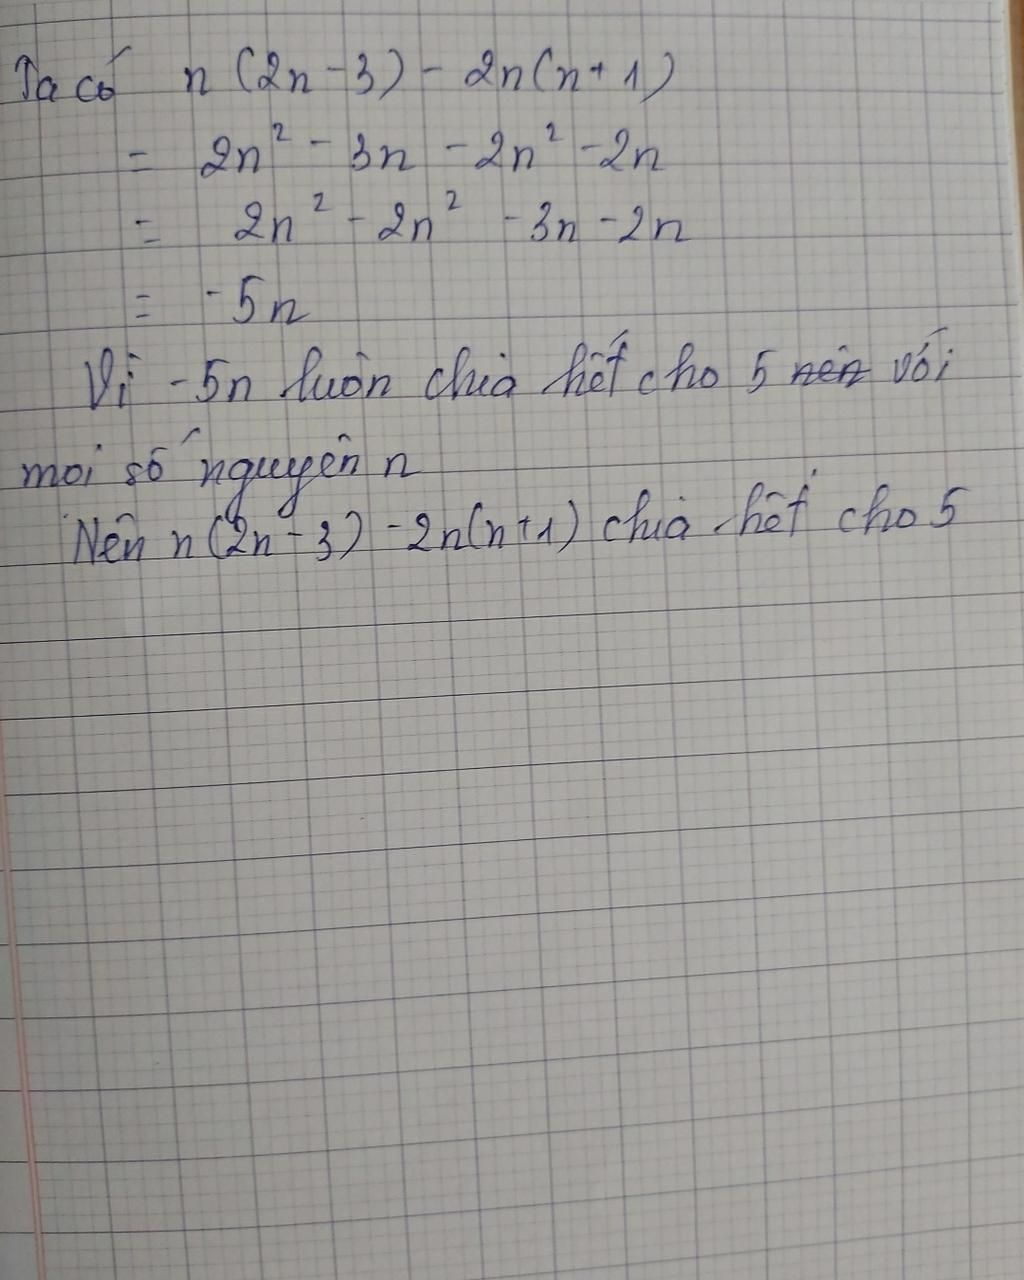 Ta có n(2n-3) - 2n(n+1)
= 2n² - 3n - 2n² - 2n
= 2n² - 2n² - 3n - 2n
= -5n
Vì -5n luôn chia hết cho 5 nên với
mọi số nguyên n
Nên n(2n-3) - 2n(n+1) chia hết cho 5